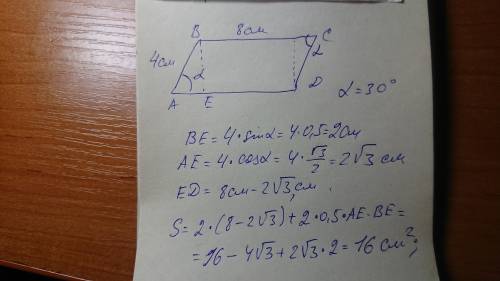 B 8см C
4см α α
A E D α = 30°
BE = 4 · sinα = 4 · 0,5 = 2см
AE = 4 · cosα = 4 · √3/2 = 2√3 см
ED = 8см - 2√3, см
S = 2 · (8 - 2√3) + 2 · 0,5 · AE · BE =
= 16 - 4√3 + 2√3 · 2 = 16 см²;